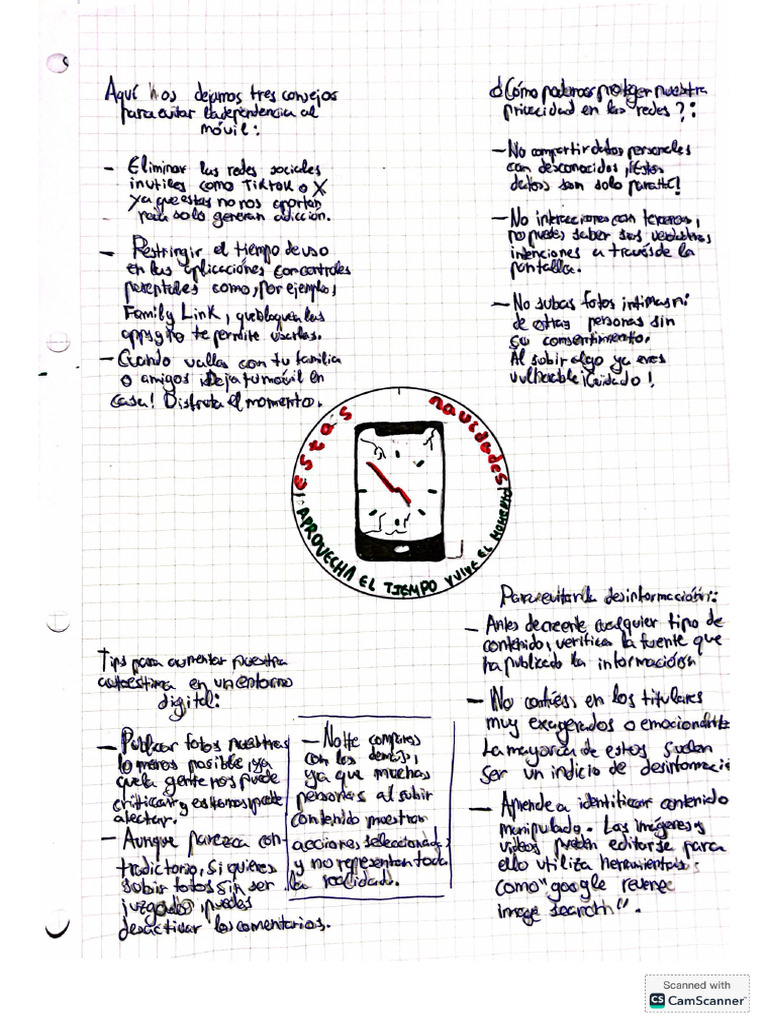 Aquí nos dejamos tres consejos
para evitar la dependencia al
móvil:
- Eliminar las redes sociales
inutiles como TikTok o X
ya que estas no nos aportan
solo generan adicción.
- Restringir el tiempo de uso
en las aplicaciónes con controles
parentales como, por ejemplo,
Family Link, que bloquea las
apps y no te permite usarlas.
- Cuando vallas con tu familia
o amigos ¡Deja tu móvil en
casa! Disfruta el momento.
¿Cómo podemos proteger nuestra
privacidad en las redes?:
- No compartir datos personales
con desconocidos, ¡Estos
datos son solo para ti!
- No interacciones con terceros,
no puedes saber sus verdaderas
intenciones a través de la
pantalla.
- No subas fotos intimas ni
de otras personas sin
su consentimiento.
Al subir algo ya eres
vulnerable ¡Cuidado!
¡Estas navidades
APROVECHA EL TIEMPO Y VIVE EL MOMENTO!
Tips para aumentar nuestra
autoestima en un entorno
digital:
- Publicar fotos nuestras
lo menos posible, ya
que la gente nos puede
criticar y eso nos puede
afectar.
- Aunque parezca con-
tradictorio, si quieres
subir fotos sin ser
juzgado puedes
desactivar los comentarios.
- No te compares
con los demás,
ya que muchas
personas al subir
contenido muestran
acciones seleccionadas
y no representan toda
la realidad.
Para evitar la desinformación:
- Antes de creerte cualquier tipo de
contenido, verifica la fuente que
ha publicado la información
- No confíes en los titulares
muy exagerados o emocionantes
La mayoría de estos suelen
ser un indicio de desinformació
- Aprende a identificar contenido
manipulado. Las imágenes y
videos pueden editarse para
ello utiliza herramientas
como "google reverse
image search".
Scanned with
CS CamScanner